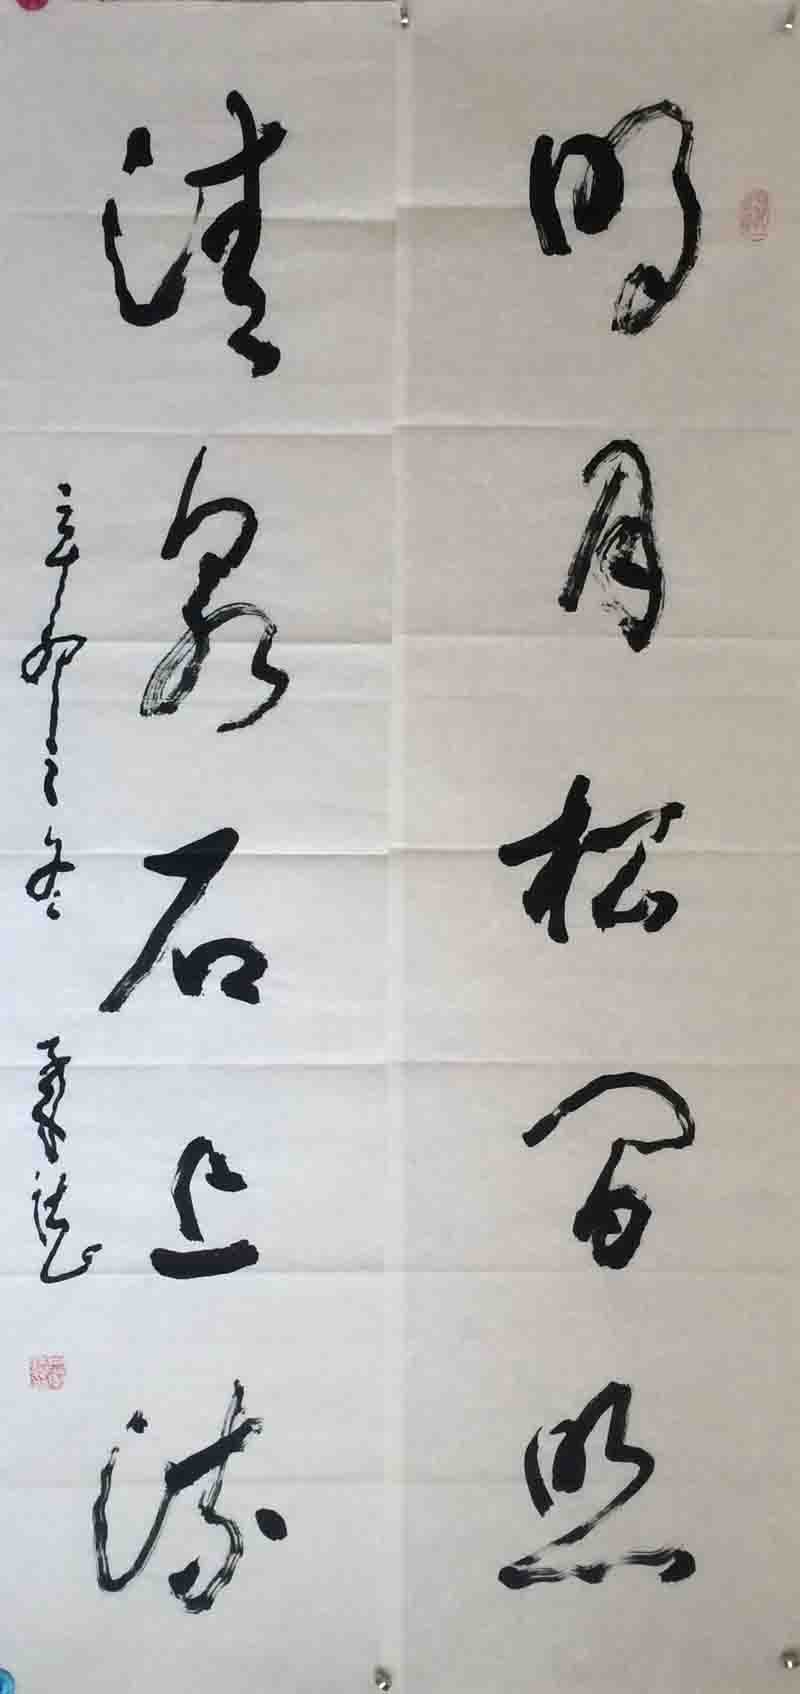 明月松间照
清泉石上流
辛卯之冬